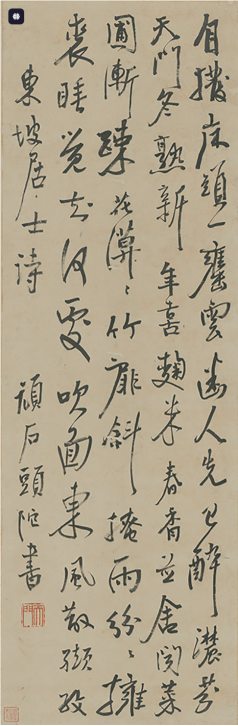 自撥床頭一甕雲幽人先已醉濃芬
天門冬熟新年喜麴米春香並舍聞菜
圃漸疎花漠〻竹扉斜掩雨紛〻擁
裘睡覺知何處吹面東風散纈紋
東坡居士詩 頑石頭陀書